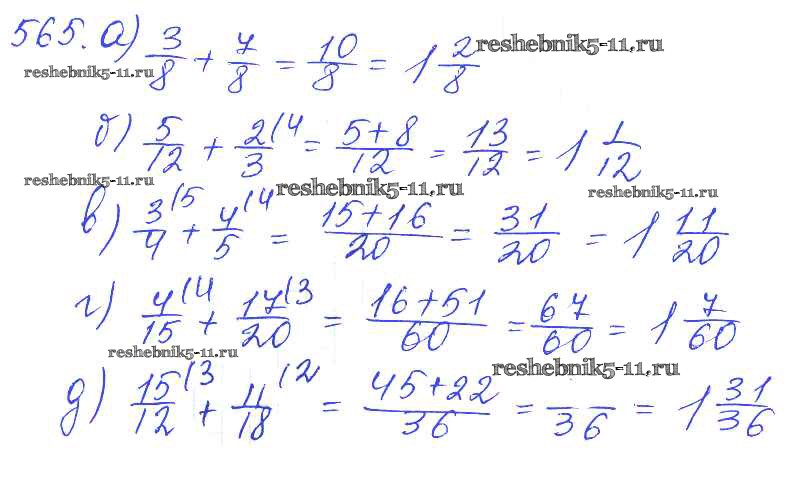 565. а) 3/8 + 7/8 = 10/8 = 1 2/8 reshebnik5-11.ru
reshebnik5-11.ru
б) 5/12 + 2/3 (4 = 5+8/12 = 13/12 = 1 1/12
reshebnik5-11.ru reshebnik5-11.ru reshebnik5-11.ru
в) 3/4 (5 + 4/5 (4 = 15+16/20 = 31/20 = 1 11/20
г) 4/15 (4 + 17/20 (3 = 16+51/60 = 67/60 = 1 7/60
reshebnik5-11.ru reshebnik5-11.ru
д) 15/12 (3 + 11/18 (2 = 45+22/36 = /36 = 1 31/36